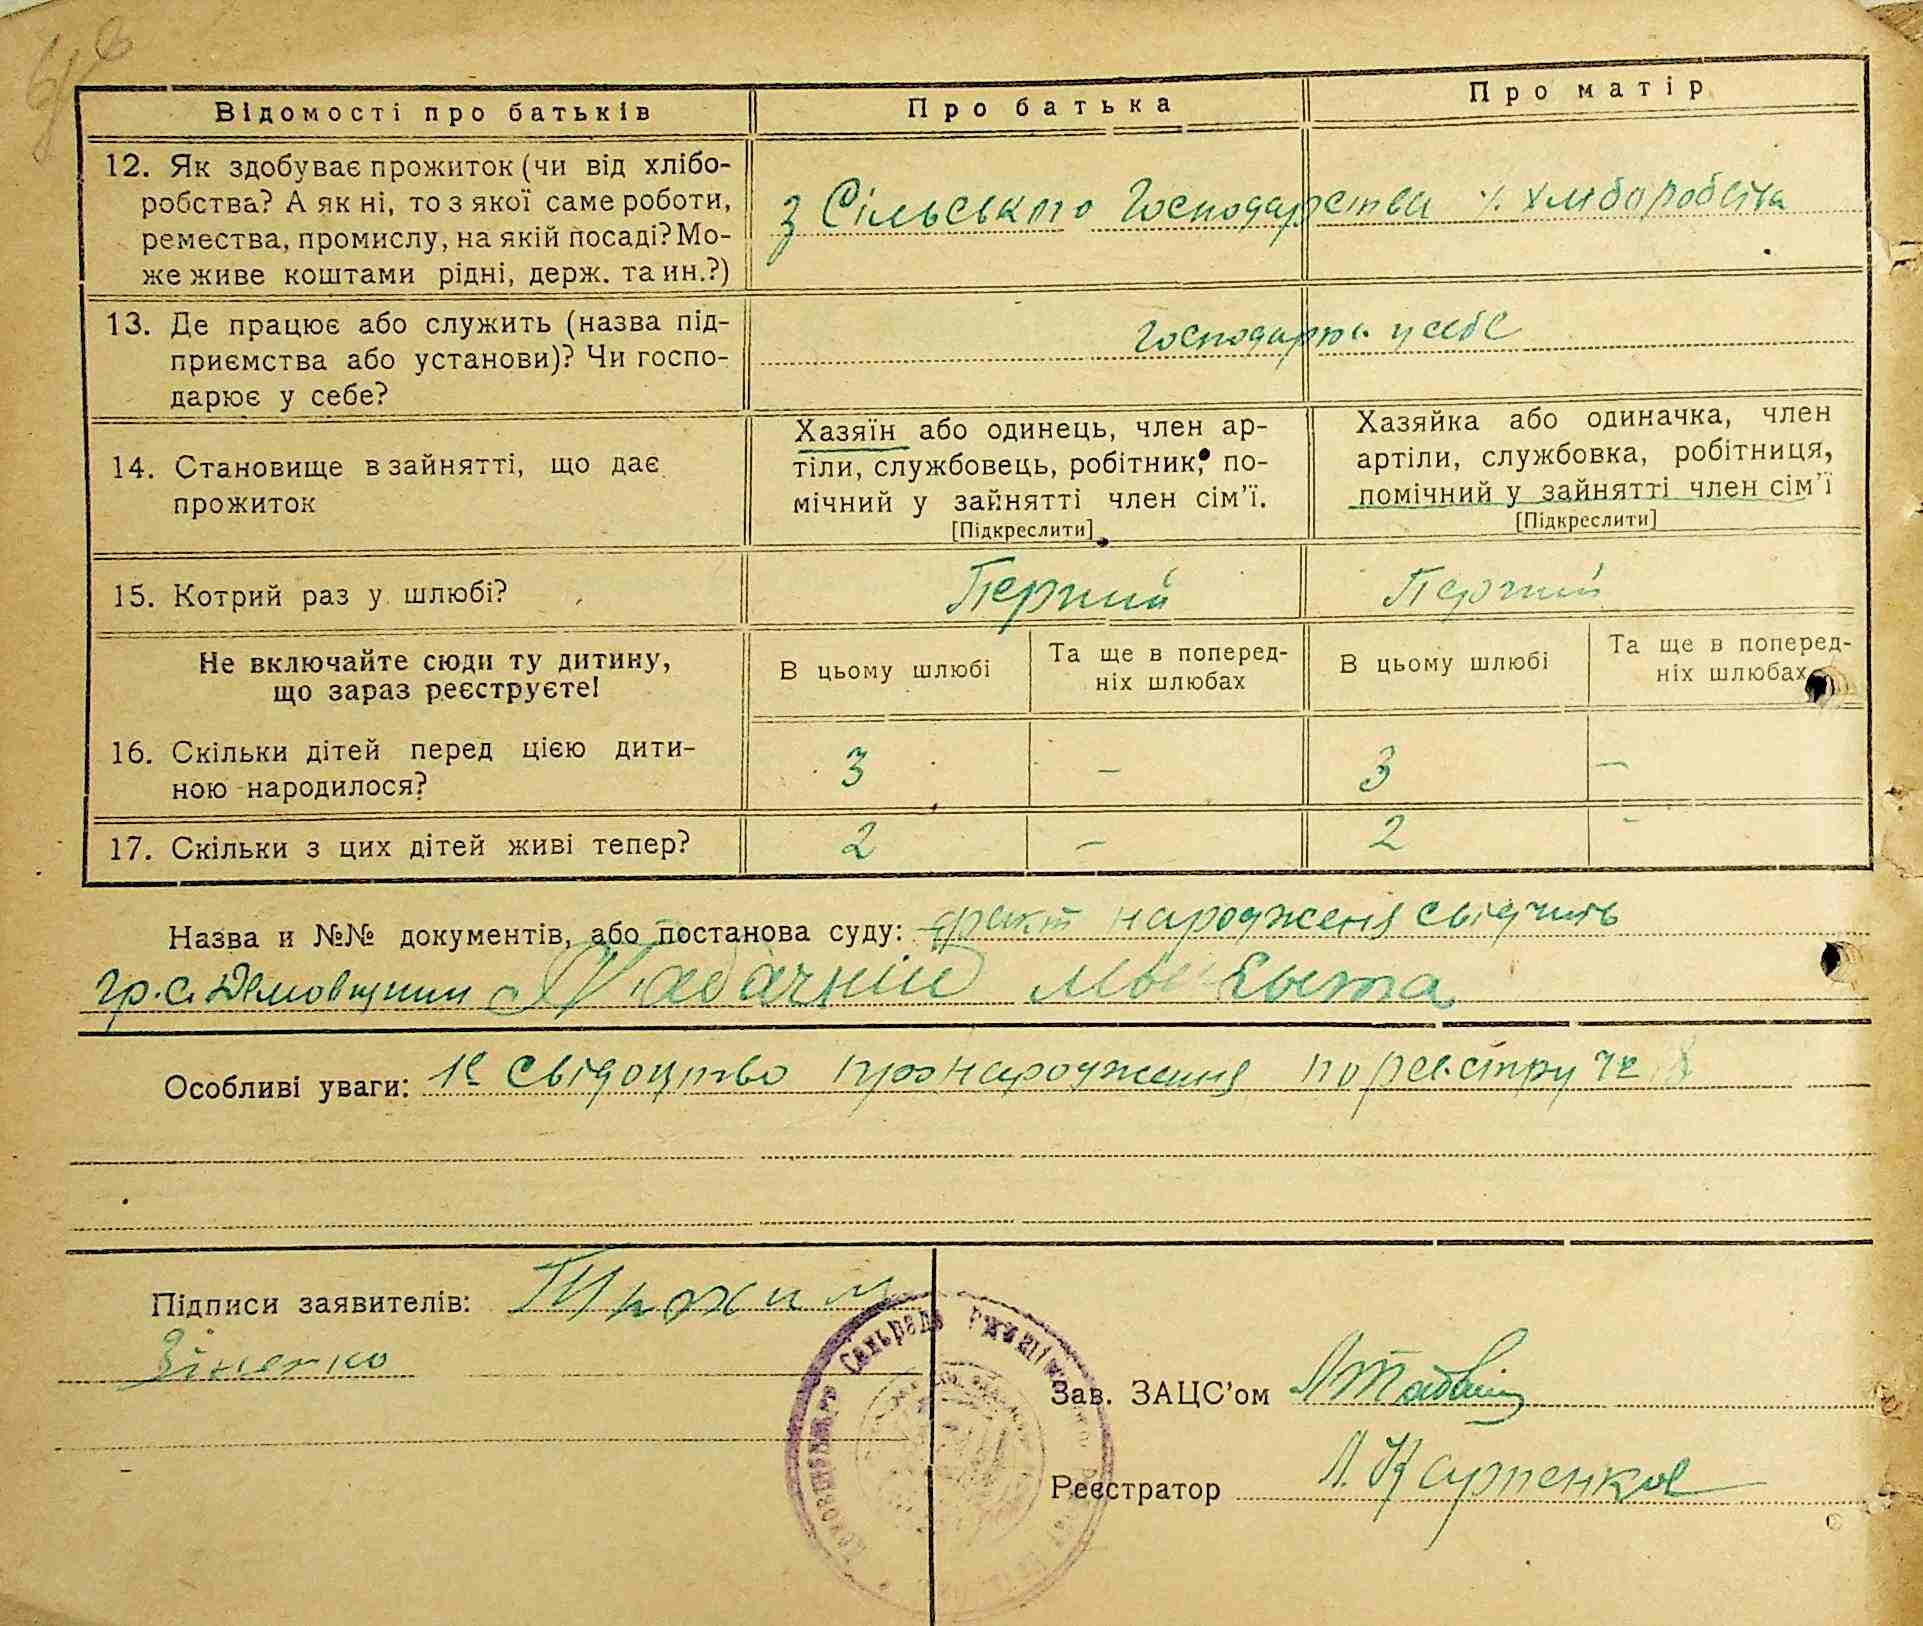 Відомості про батьків
Про батька
Про матір
12. Як здобуває прожиток (чи від хлібо-
робства? А як ні, то з якої саме роботи,
ремества, промислу, на якій посаді? Мо-
же живе коштами рідні, держ. та ин.?)
з Сільського Господарства хліборобства
13. Де працює або служить (назва під-
приємства або установи)? Чи госпо-
дарює у себе?
у себе
14. Становище в зайнятті, що дає
прожиток
Хазяїн або одинець, член ар-
тіли, службовець, робітник, по-
мічний у зайнятті член сім'ї.
[Підкреслити]
Хазяйка або одиначка, член
артіли, службовка, робітниця,
помічний у зайнятті член сім'ї
[Підкреслити]
15. Котрий раз у шлюбі?
Не включайте сюди ту дитину,
що зараз реєструєте!
В цьому шлюбі
Та ще в поперед-
ніх шлюбах
В цьому шлюбі
Та ще в поперед-
ніх шлюбах
16. Скільки дітей перед цією дити-
ною народилося?
3
–
3
–
17. Скільки з цих дітей живі тепер?
2
–
2
–
Назва и №№ документів, або постанова суду: факт народженя свідчить
гр. с. Демовщини
Особливі уваги: свідоцтво про народження по реєстру
Підписи заявителів:
Зіненко
Зав. ЗАЦС'ом
Реєстратор